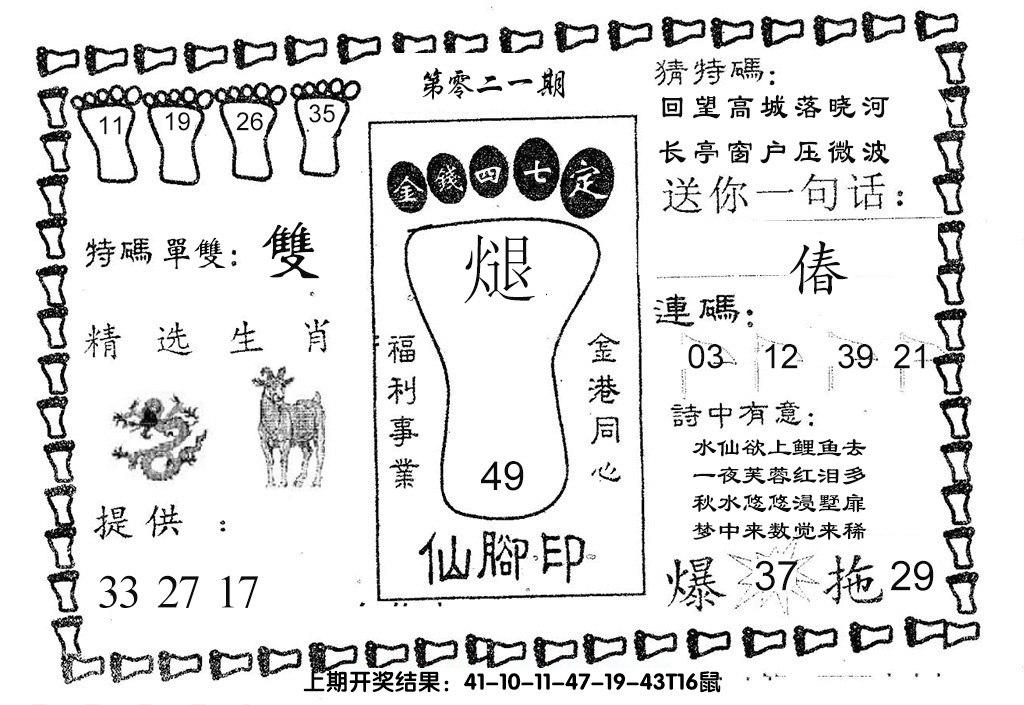 第零二一期
11 19 26 35
特碼單雙：雙
精选生肖
提供：
33 27 17
金錢四七定
煺
福利事業
金港同心
49
仙腳印
猜特碼：
回望高城落晓河
长亭窗户压微波
送你一句话：
偆
連碼：
03 12 39 21
詩中有意：
水仙欲上鲤鱼去
一夜芙蓉红泪多
秋水悠悠浸墅扉
梦中来数觉来稀
爆 37 拖 29
上期开奖结果：41-10-11-47-19-43T16鼠